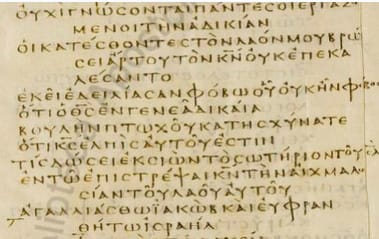 ΟΥΧΙΓΝΩΣΟΝΤΑΙΠΑΝΤΕΣΟΙΕΡΓΑΖ
ΜΕΝΟΙΤΗΝΑΔΙΚΙΑΝ
ΟΙΚΑΤΕΣΘΟΝΤΕΣΤΟΝΛΑΟΝΜΟΥΒΡΩ
ΣΕΙΑΡΤΟΥΤΟΝΚΝΟΥΚΕΠΕΚΑ
ΛΕΣΑΝΤΟ
ΕΚΕΙΕΔΕΙΛΙΑΣΑΝΦΟΒΩΟΥΟΥΚΗΝΦΟΒΟΣ
ΟΤΙΟΘΣΕΝΓΕΝΕΑΔΙΚΑΙΑ
ΒΟΥΛΗΝΠΤΩΧΟΥΚΑΤΗΣΧΥΝΑΤΕ
ΟΤΙΚΣΕΛΠΙΣΑΥΤΟΥΕΣΤΙΝ
ΤΙΣΔΩΣΕΙΕΚΣΙΩΝΤΟΣΩΤΗΡΙΟΝΤΟΥ
ΕΝΤΩΕΠΙΣΤΡΕΨΑΙΚΝΤΗΝΑΙΧΜΑΛΩ
ΣΙΑΝΤΟΥΛΑΟΥΑΥΤΟΥ
ΑΓΑΛΛΙΑΣΘΩΙΑΚΩΒΚΑΙΕΥΦΡΑΝ
ΘΗΤΩΙΣΡΑΗΛ